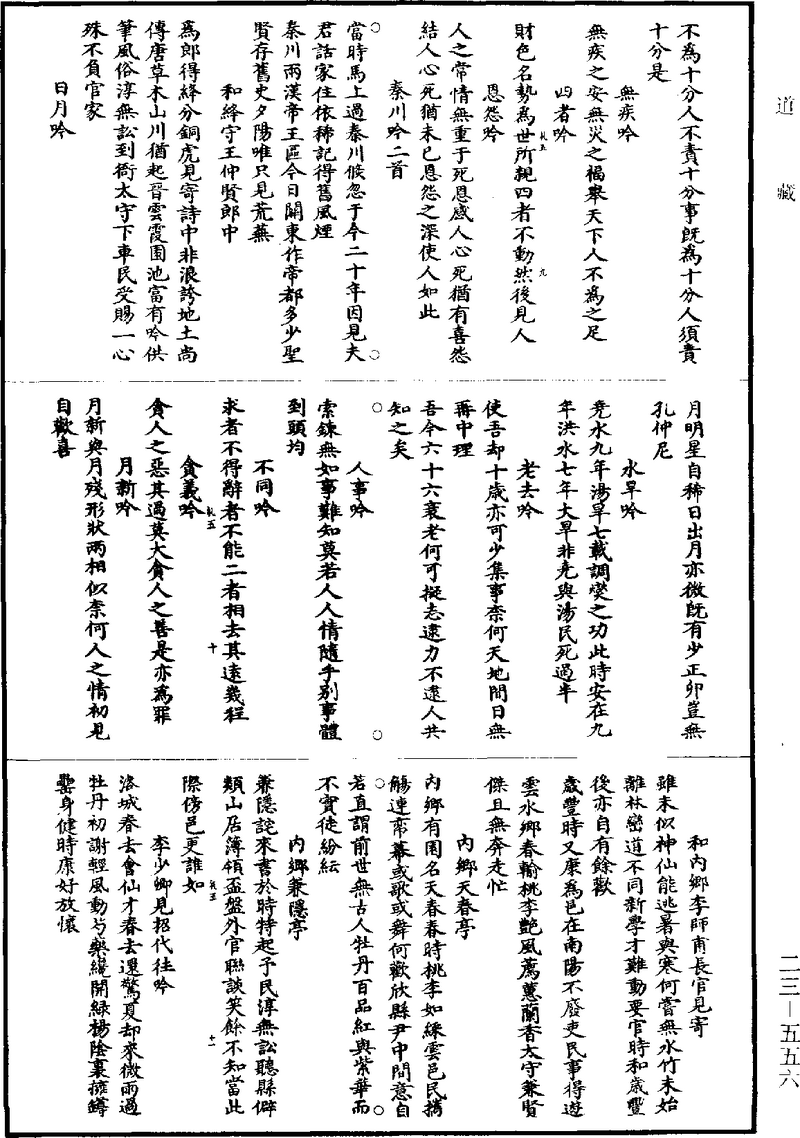 道藏
不為十分人不責十分事旣為十分人須責
十分是
無疾吟
無疾之安無災之福舉天下人不為之足
四者吟
財色名勢為世所親四者不動然後見人
恩怨吟
人之常情無重于死恩感人心死猶有喜怨
結人心死猶未已恩怨之深使人如此
秦川吟二首
當時馬上過秦川倐忽于今二十年因見夫
君話家住依稀記得舊風煙
秦川兩漢帝王區今日關東作帝都多少聖
賢存舊史夕陽唯只見荒蕪
和絳守王仲賢郎中
為郎得絳分銅虎見寄詩中非浪誇地土尚
傳唐草木山川猶起晉雲霞園池富有吟供
筆風俗淳無訟到衙太守下車民受賜一心
殊不負官家
日月吟
月明星自稀日出月亦微旣有少正卯豈無
孔仲尼
水旱吟
堯水九年湯旱七載調燮之功此時安在九
年洪水七年大旱非堯與湯民死過半
老去吟
使吾却十歲亦可少集事柰何天地間日無
再中理
吾今六十六衰老何可擬志逮力不逮人共
知之矣
人事吟
索鍊無如事難知莫若人人情隨手別事體
到頭均
不同吟
求者不得辭者不能二者相去其遠幾程
貪義吟
貪人之惡其過莫大貪人之善是亦為罪
月新吟
月新與月殘形狀兩相似柰何人之情初見
自歡喜
和內鄉李師甫長官見寄
雖未似神仙能逃暑與寒何嘗無水竹未始
離林巒道不同新學才難動要官時和歲豐
後亦自有餘歡
歲豐時又康為邑在南陽不廢吏民事得遊
雲水鄉春輸桃李艶風薦蕙蘭香太守兼賢
傑且無奔走忙
內鄉天春亭
內鄉有園名天春春時桃李如綵雲邑民擕
觴連帟幕或歌或舞何歡欣縣尹中間意自
若直謂前世無古人牡丹百品紅與紫華而
不實徒紛紜
內鄉兼隱亭
兼隱詫來書於時特起予民淳無訟聽縣僻
類山居簿領盃盤外官聯談笑餘不知當此
際傍邑更誰如
李少卿見招代往吟
洛城春去會仙才春去還驚夏却來微雨過
牡丹初謝輕風動芍藥纔開綠楊陰裏擁罇
罍身健時康好放懷
二三-五五六